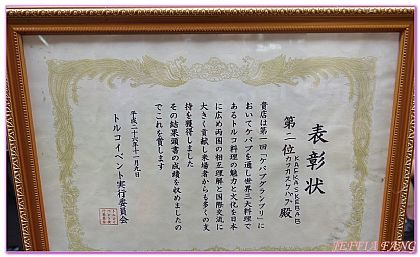 表彰状
KAFKASKEBAB
第二位 カフカスケバブ 殿
貴店は第一回「ケバブグランプリ」に
おいてケバブを通し世界三大料理で
あるトルコ料理の魅力と文化を日本
に広め両国の相互理解と国際交流に
大きく貢献し来場者からも多くの支
持を獲得しました
その結果頭書の成績を収めましたの
でこれを賞します
平成二十六年十一月九日
トルコイベント実行委員会
JEFFIA FANG